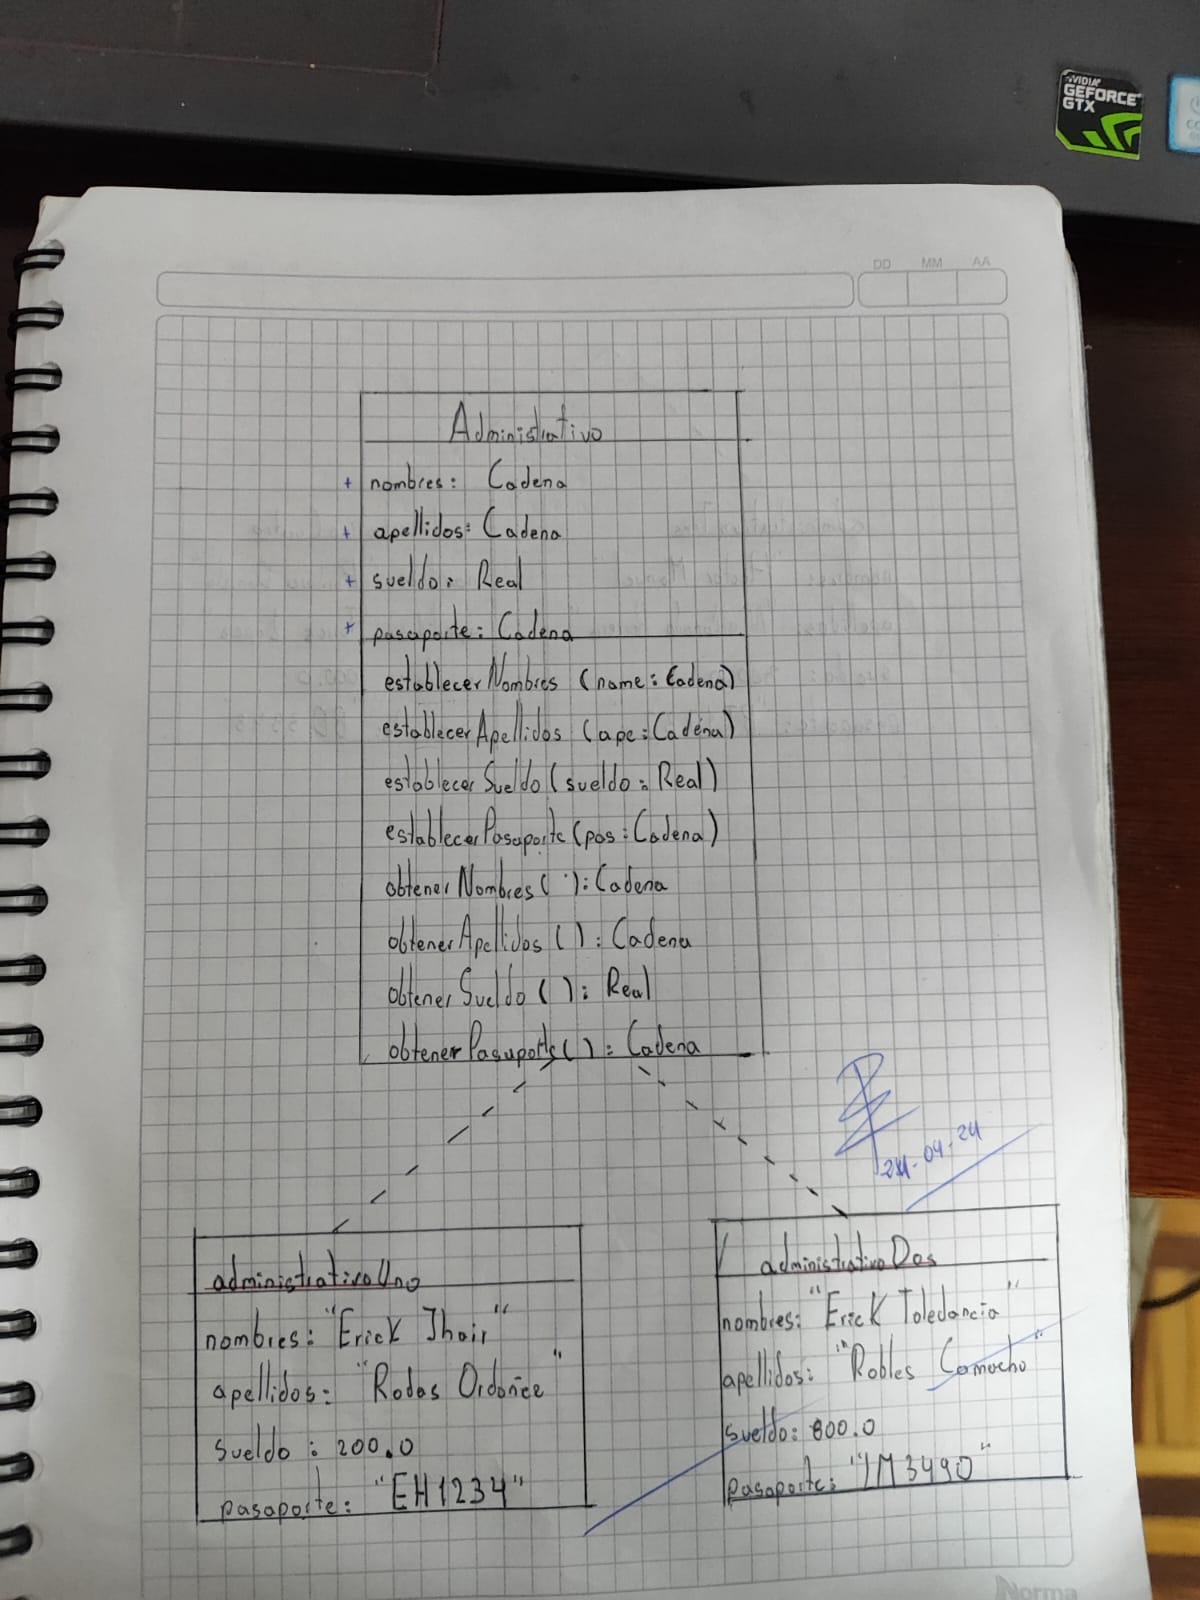 NVIDIA
GEFORCE
GTX
DD MM AA
Administrativo
+ nombres: Cadena
+ apellidos: Cadena
+ sueldo: Real
+ pasaporte: Cadena
establecerNombres (name: Cadena)
establecerApellidos (ape: Cadena)
establecerSueldo (sueldo: Real)
establecerPasaporte (pas: Cadena)
obtenerNombres( ): Cadena
obtenerApellidos ( ): Cadena
obtenerSueldo ( ): Real
obtenerPasaporte( ): Cadena
24-04-24
administrativoUno
nombres: "Erick Jhair"
apellidos: "Rodas Ordoñe"
sueldo: 200.0
pasaporte: "EH1234"
administrativoDos
nombres: "Erick Toledancia"
apellidos: "Robles Camacho"
sueldo: 800.0
pasaporte: "IM3490"
Norma